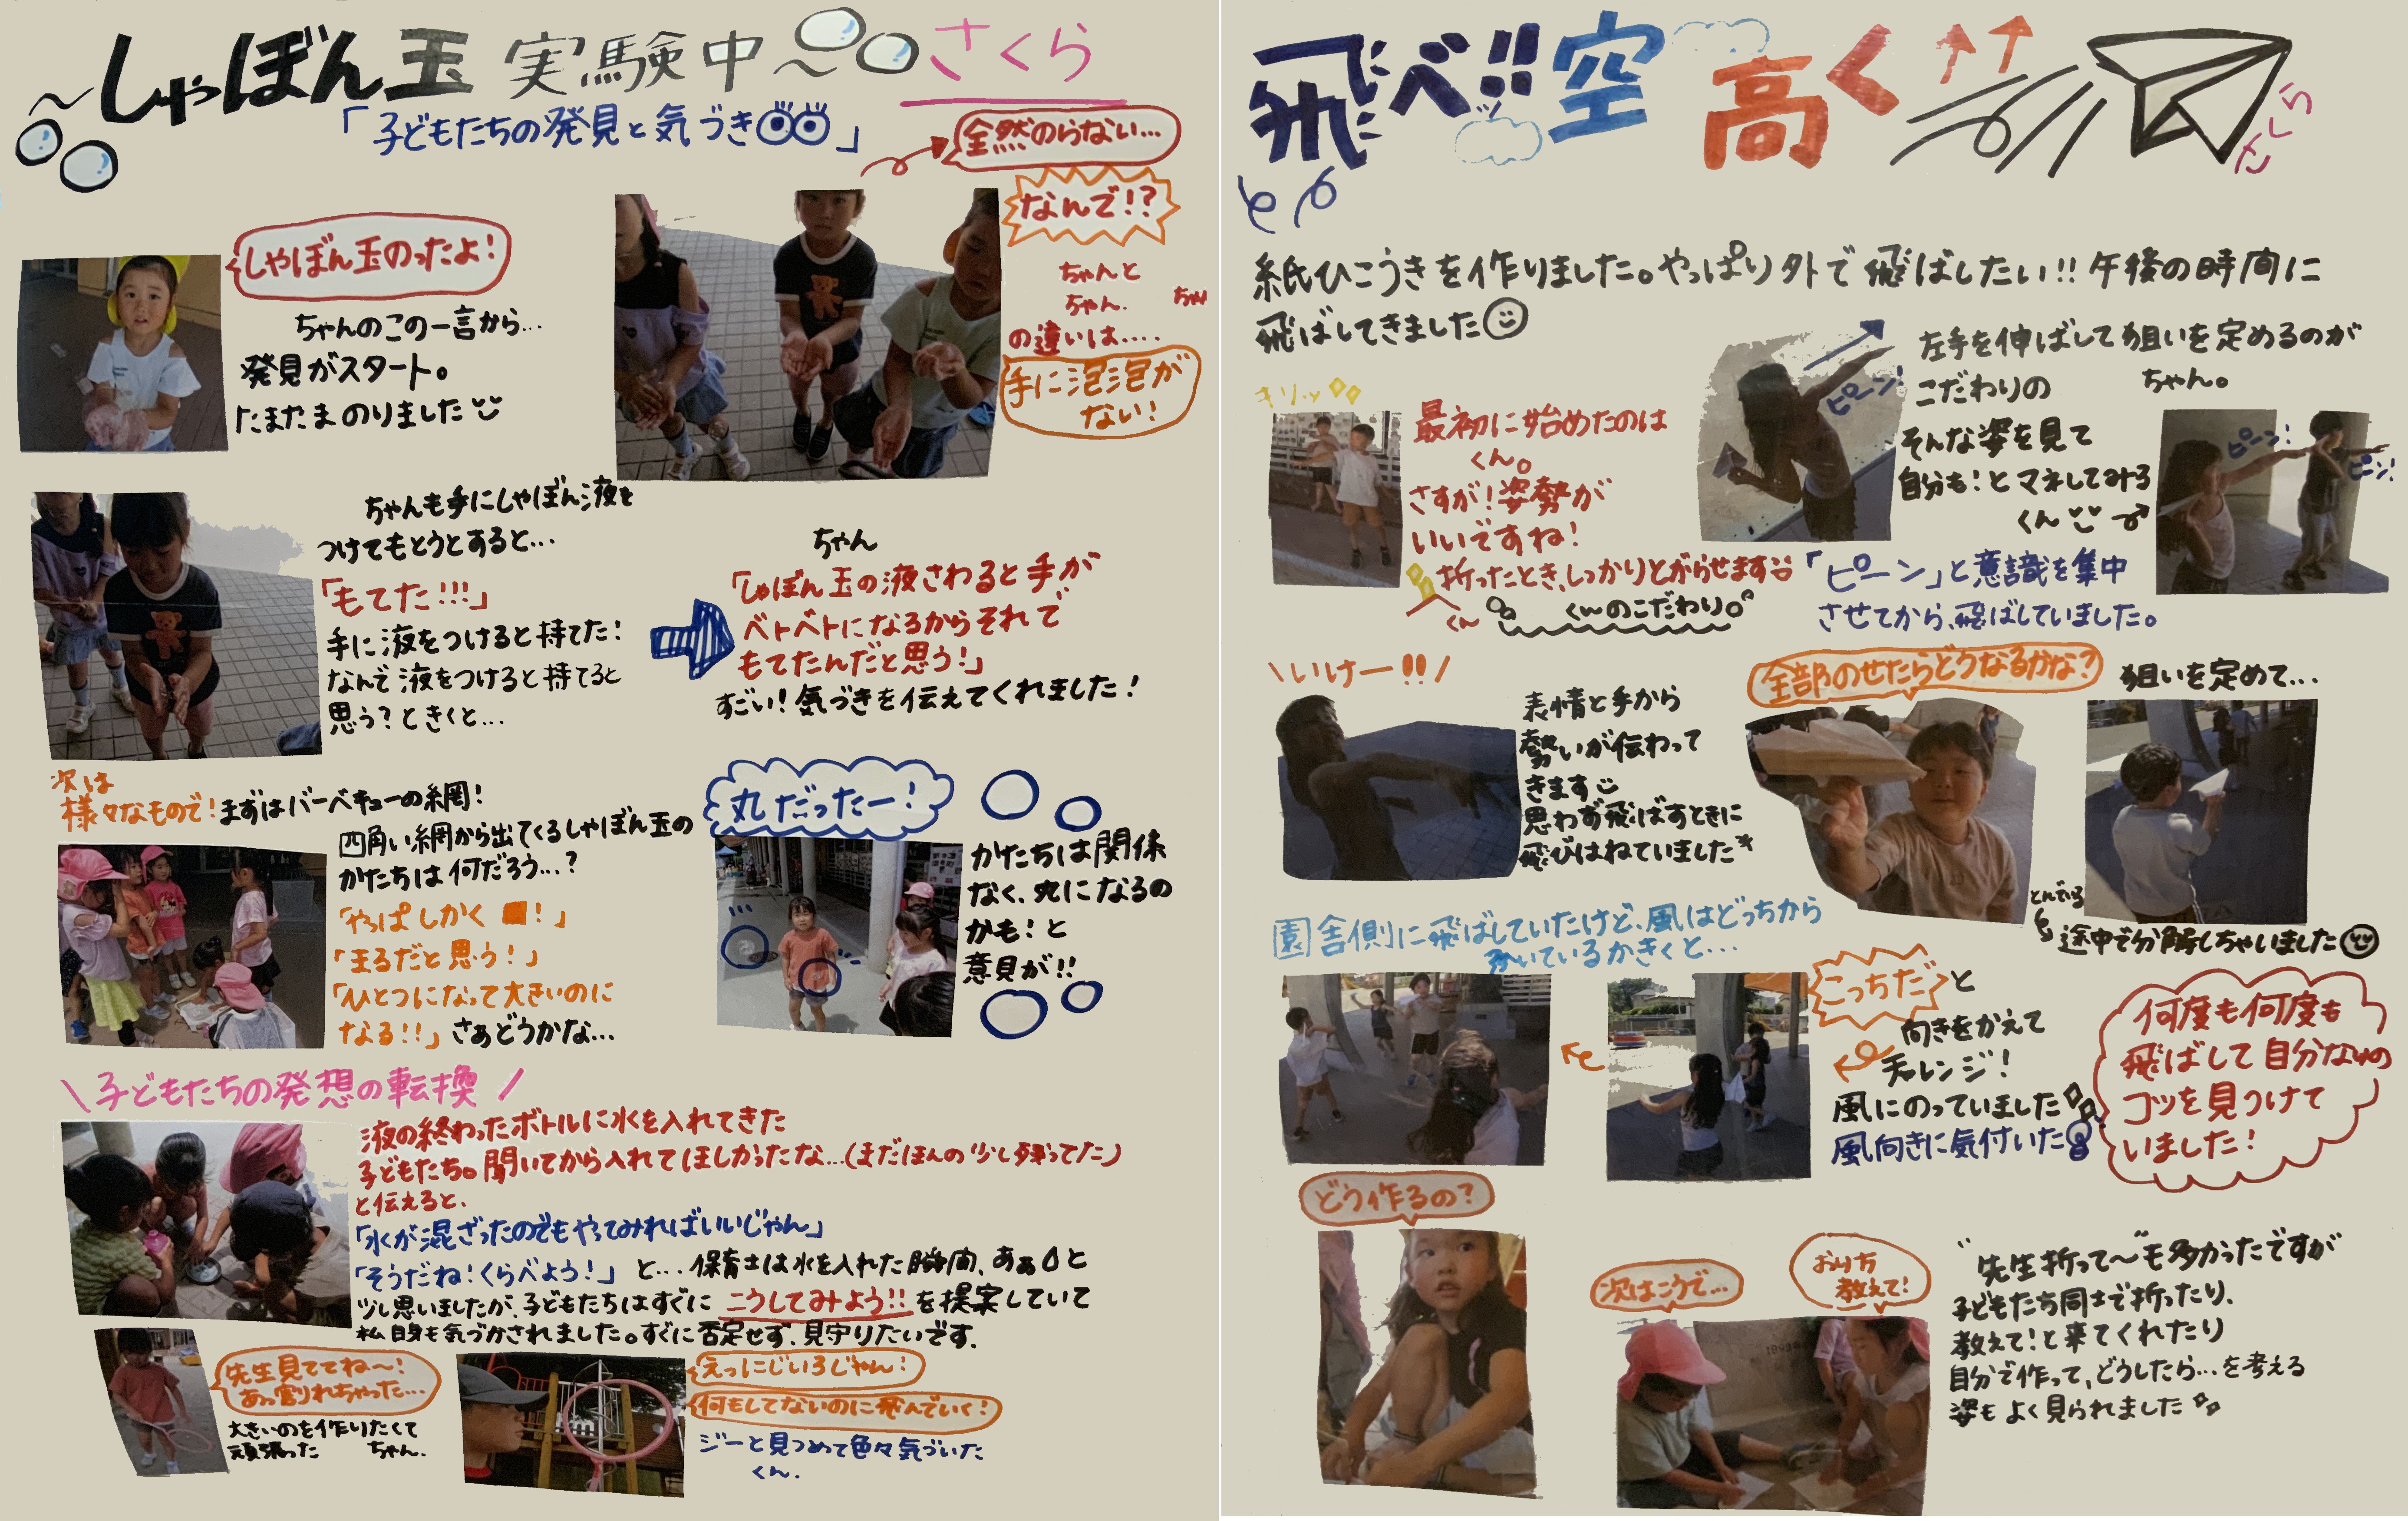 ～しゃぼん玉実験中～さくら
「子どもたちの発見と気づき」
全然のらない…
なんで!?
ちゃんと
ちゃん. ちゃん
の違いは….
手に泡泡が
ない!
しゃぼん玉のったよ!
ちゃんのこの一言から…
発見がスタート。
たまたまのりました
ちゃんも手にしゃぼん液を
つけてもとうとすると…
「もてた!!!」
手に液をつけると持てた!
なんで液をつけると持てると
思う?ときくと…
ちゃん
「しゃぼん玉の液さわると手が
ベトベトになるからそれで
もてたんだと思う!」
すごい!気づきを伝えてくれました!
次は
様々なもので!まずはバーベキューの網!
四角い網から出てくるしゃぼん玉の
かたちは何だろう…?
「やっぱしかく■!」
「まるだと思う!」
「ひとつになって大きいのに
なる!!」さぁどうかな…
丸だったー!
かたちは関係
なく、丸になるの
かも!と
意見が!!
\子どもたちの発想の転換/
液の終わったボトルに水を入れてきた
子どもたち。聞いてから入れてほしかったな…(まだほんの少し残ってた)
と伝えると、
「水が混ざったのでもやってみればいいじゃん」
「そうだね!くらべよう!」と…保育士は水を入れた瞬間、あぁと
少し思いましたが、子どもたちはすぐにこうしてみよう!!を提案していて
私自身も気づかされました。すぐに否定せず、見守りたいです.
先生見ててね～!
あっ割れちゃった…
大きいのを作りたくて
頑張った ちゃん.
えっにじいろじゃん!
何もしてないのに飛んでいく!
ジーと見つめて色々気づいた
くん.
飛べ!!空高く↑↑
さくら
紙ひこうきを作りました。やっぱり外で飛ばしたい!!午後の時間に
飛ばしてきました
キリッ
最初に始めたのは
くん。
さすが!姿勢が
いいですね!
折ったとき、しっかりとがらせます
くん
くんのこだわり
ピーン!
左手を伸ばして狙いを定めるのが
こだわりの ちゃん。
そんな姿を見て
自分も!とマネしてみる
くん
ピーン!
ピーン!
「ピーン」と意識を集中
させてから、飛ばしていました。
\いけー!!/
表情と手から
勢いが伝わって
きます
思わず飛ばすときに
飛びはねていました
全部のせたらどうなるかな?
狙いを定めて…
とんでいる
途中で分解しちゃいました
園舎側に飛ばしていたけど、風はどっちから
吹いているかきくと…
こっちだと
向きをかえて
チャレンジ!
風にのっていました
風向きに気付いた
何度も何度も
飛ばして自分なりの
コツを見つけて
いました!
どう作るの?
次はこうで…
おり方
教えて!
"先生折って～"も多かったですが
子どもたち同士で折ったり、
教えて!と来てくれたり
自分で作って、どうしたら…を考える
姿もよく見られました